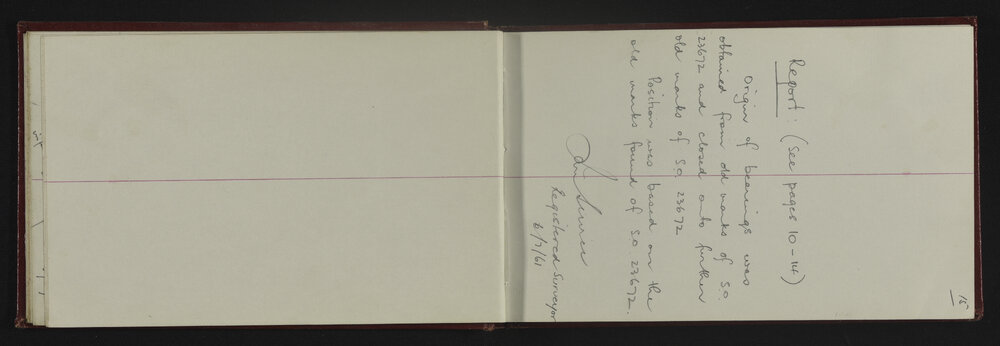 15
Report: (see pages 10-14)
Origin of bearings was
obtained from old marks of SO
23672 and closed onto further
old marks of SO 23672
Position was based on the
old marks found of S.O. 23672.
Registered Surveyor
/7/61